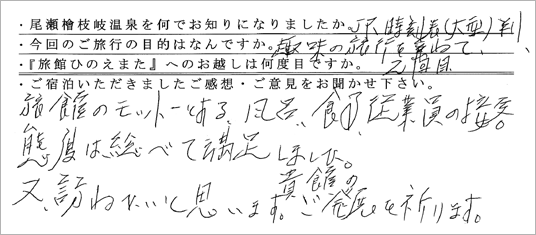 ・尾瀬檜枝岐温泉を何でお知りになりましたか。JR時刻表(大型)判、
・今回のご旅行の目的はなんですか。趣味の旅行を兼ねて、
・『旅館ひのえまた』へのお越しは何度目ですか。2度目
・ご宿泊いただきましたご感想・ご意見をお聞かせ下さい。
旅館のモットーとする、風呂、食事、従業員の接客。
態度は総べて満足しました。
又、訪ねたいと思います。貴館のご発展を祈ります。